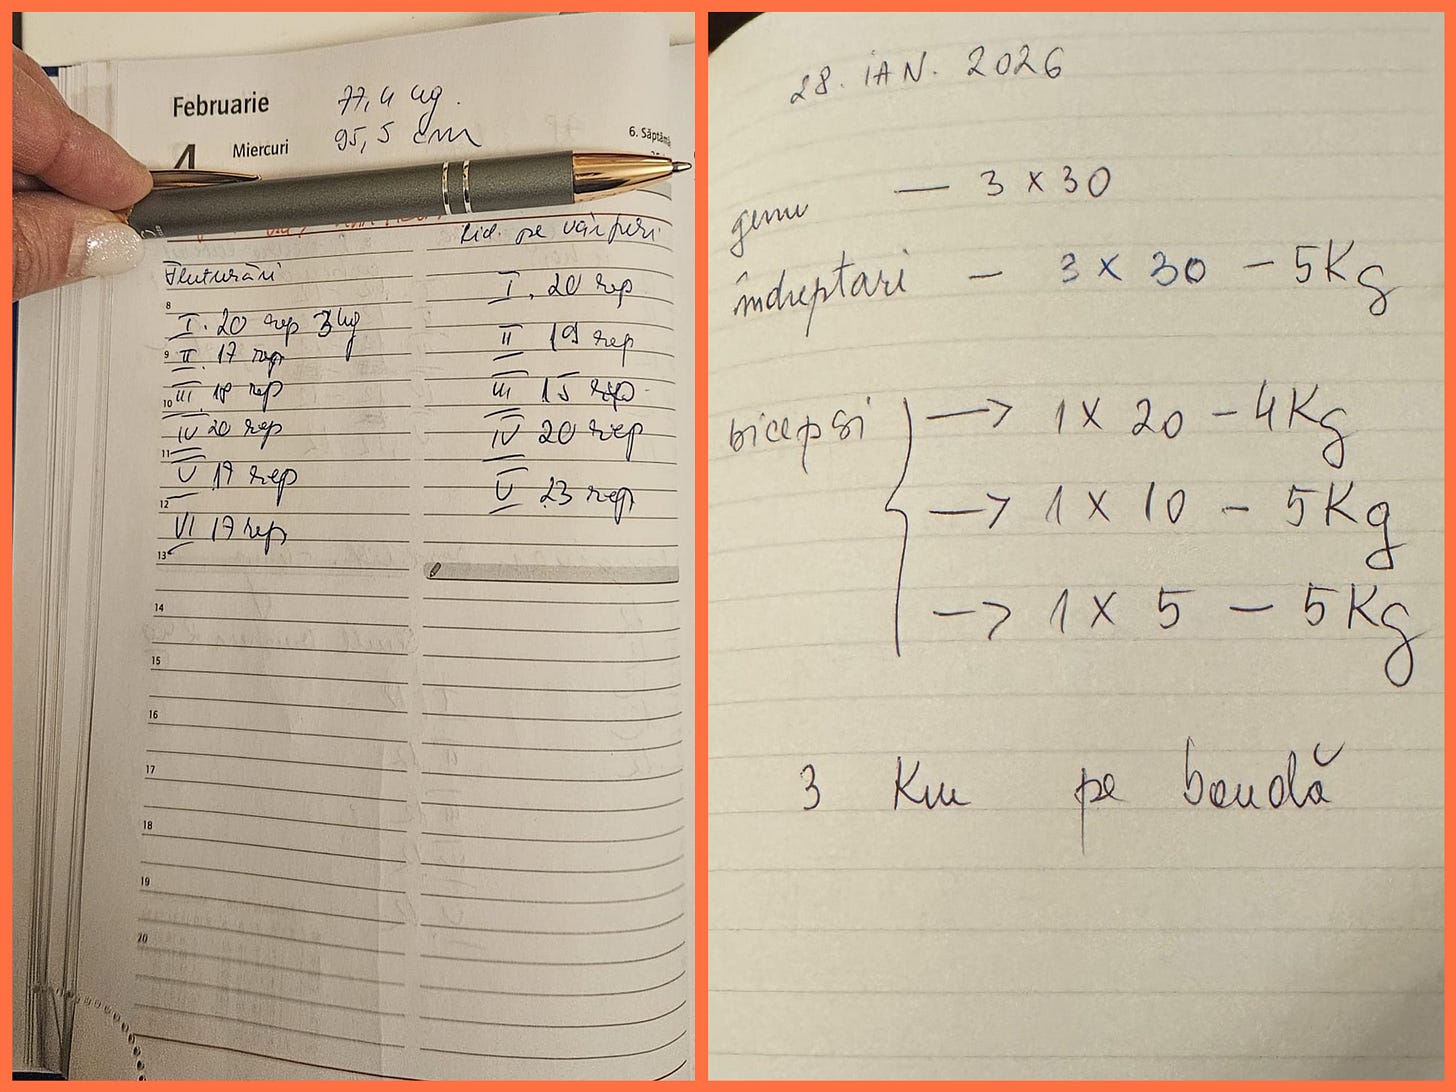 Februarie
77,4 kg.
95,5 cm
4 Miercuri
6. Săptăm
Rid. pe vârfuri
Fluturări
I. 20 rep
8
I. 20 rep 3 kg
II 19 rep
9
II. 17 rep
III 15 rep.
10
III 18 rep
IV 20 rep
11
IV 20 rep
V 23 rep
12
V 17 rep
13
VI 17 rep
14
15
16
17
18
19
20
28. IAN. 2026
genu — 3 x 30
îndreptari — 3 x 30 – 5Kg
bicepsi —> 1 x 20 – 4Kg
—> 1 x 10 – 5Kg
—> 1 x 5 – 5Kg
3 Km pe bandă